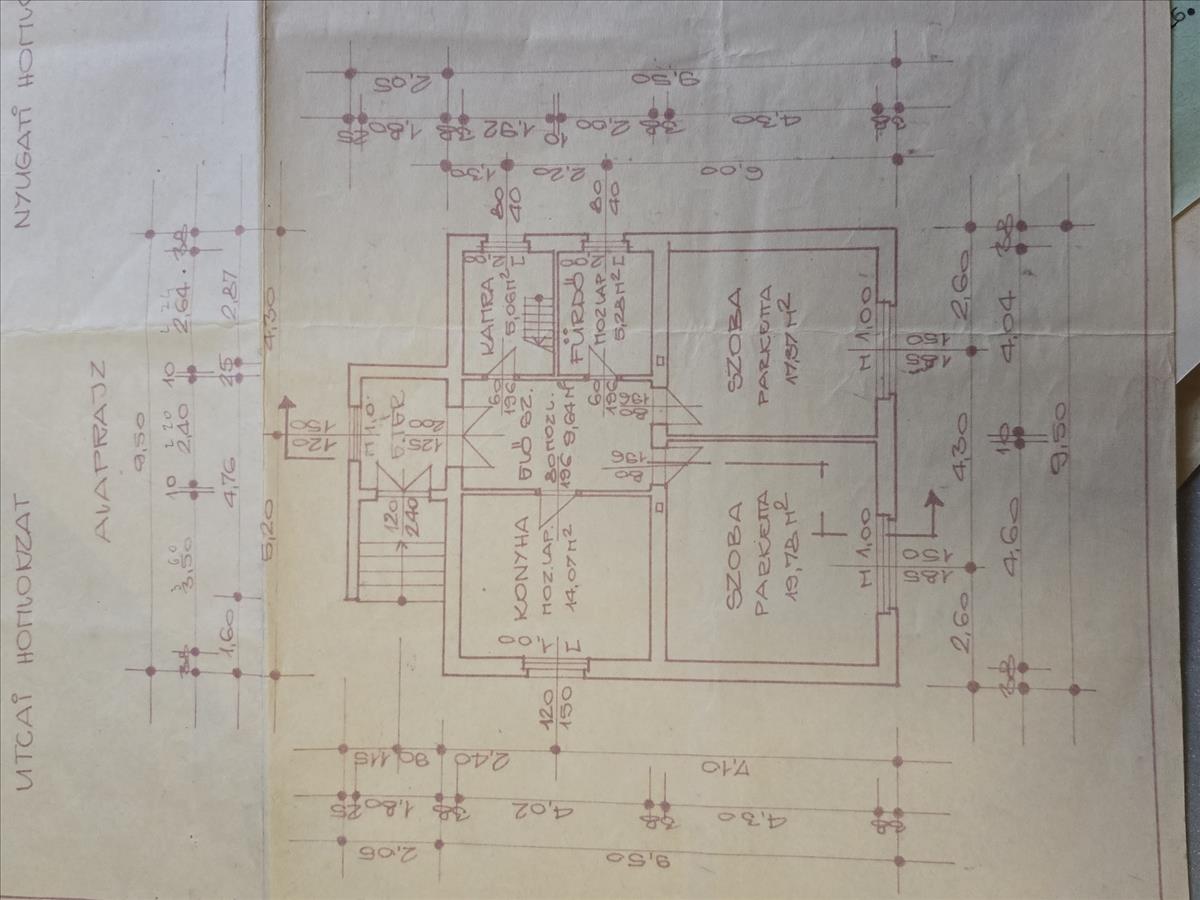 NYUGATI
UTCAI HOMLOKZAT
ALAPRAJZ
9,50
38
3,50
10
2,40
10
2,64
38
1,60
4,76
25
2,87
5,20
4,30
120
150
M 1,0
E.TÉR
125
200
120
240
KAMRA
5,06 M²
FÜRDŐ
MOZLAP.
5,28 M²
60
196
60
196
ELŐSZ.
MOZL.
9,64 M²
80
196
KONYHA
MOZ.LAP.
14,07 M²
SZOBA
PARKETTA
17,37 M²
SZOBA
PARKETTA
19,78 M²
M 1,00
M 1,00
80
40
80
40
120
150
185
150
185
150
2,05
9,50
1,80
38
1,92
10
2,00
38
4,30
38
1,30
2,20
6,00
2,60
4,30
2,60
38
4,60
10
4,04
38
9,50
115
90
2,40
7,10
25
1,80
38
4,02
38
4,30
38
2,05
9,50